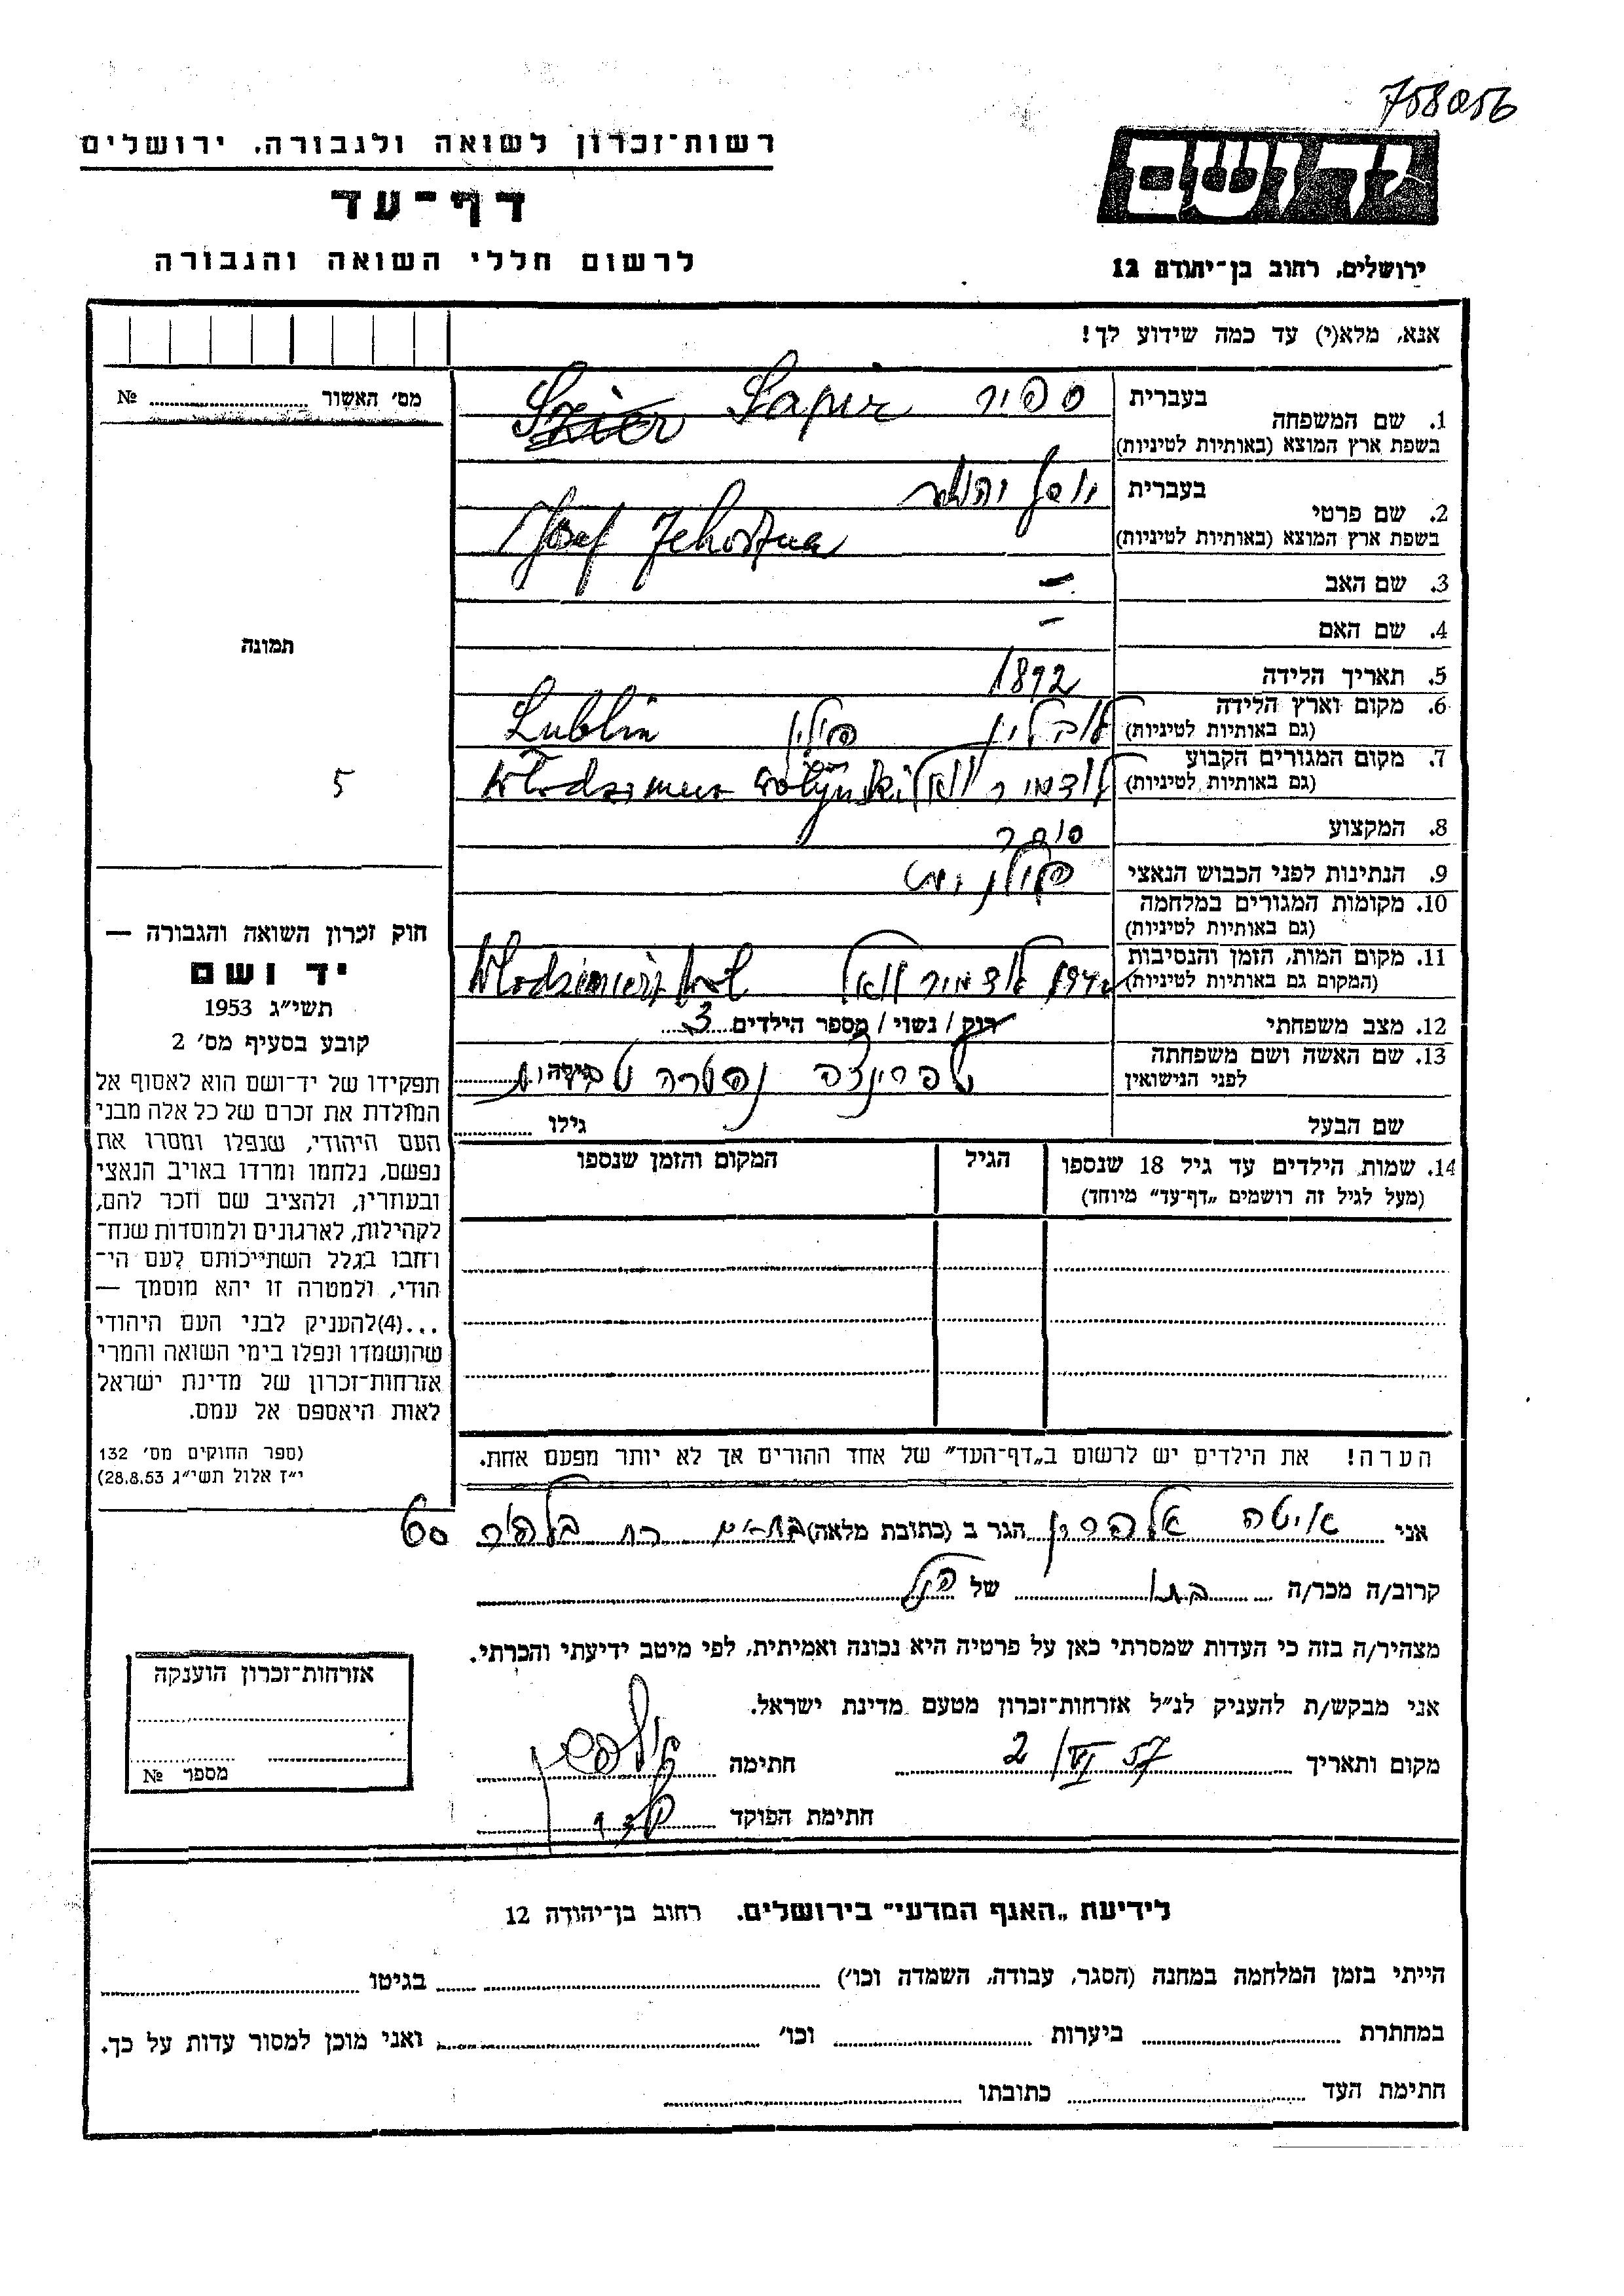 758056
רשות־זכרון לשואה ולגבורה, ירושלים
דף־עד
לרשום חללי השואה והגבורה
יד ושם
ירושלים, רחוב בן־יהודה 12
אנא, מלא(י) עד כמה שידוע לך!
מס׳ האשור № 
1. שם המשפחה בעברית ספיר
בשפת ארץ המוצא (באותיות לטיניות) Sapir
2. שם פרטי בעברית יוסף יהושע
בשפת ארץ המוצא (באותיות לטיניות) Josef Jehoszua
3. שם האב –
4. שם האם –
5. תאריך הלידה 1892
6. מקום וארץ הלידה
(גם באותיות לטיניות) לובלין פולין Lublin
7. מקום המגורים הקבוע
(גם באותיות לטיניות) לודמיר Wołyński
8. המקצוע סוחר
9. הנתינות לפני הכבוש הנאצי פולנית
10. מקומות המגורים במלחמה
(גם באותיות לטיניות)
11. מקום המות, הזמן והנסיבות
(המקום גם באותיות לטיניות) לודמיר
12. מצב משפחתי רוק / נשוי / מספר הילדים 3
13. שם האשה ושם משפחתה
לפני הנישואין שפרינצה גילה
שם הבעל גילו
14. שמות הילדים עד גיל 18 שנספו
(מעל לגיל זה רושמים „דף־עד״ מיוחד)
הגיל
המקום והזמן שנספו
הערה! את הילדים יש לרשום ב„דף־העד״ של אחד ההורים אך לא יותר מפעם אחת.
תמונה
5
חוק זכרון השואה והגבורה —
יד ושם
תשי״ג 1953
קובע בסעיף מס׳ 2
תפקידו של יד־ושם הוא לאסוף אל
המולדת את זכרם של כל אלה מבני
העם היהודי, שנפלו ומסרו את
נפשם, נלחמו ומרדו באויב הנאצי
ובעוזריו, ולהציב שם וזכר להם,
לקהילות, לארגונים ולמוסדות שנח־
רבו בגלל השתייכותם לעם הי־
הודי, ולמטרה זו יהא מוסמך —
...(4) להעניק לבני העם היהודי
שהושמדו ונפלו בימי השואה והמרי
אזרחות־זכרון של מדינת ישראל
לאות היאספם אל עמם.
(ספר החוקים מס׳ 132
י״ז אלול תשי״ג 28.8.53)
אני איטה הגר ב (כתובת מלאה) בת־ים רח
קרוב/ה מכר/ה בתו של הנ״ל
מצהיר/ה בזה כי העדות שמסרתי כאן על פרטיה היא נכונה ואמיתית, לפי מיטב ידיעתי והכרתי.
אני מבקש/ת להעניק לנ״ל אזרחות־זכרון מטעם מדינת ישראל.
מקום ותאריך 2/VI 57 חתימה
חתימת הפוקד
אזרחות־זכרון הוענקה
מספר №
לידיעת „האגף המדעי״ בירושלים, רחוב בן־יהודה 12
הייתי בזמן המלחמה במחנה (הסגר, עבודה, השמדה וכו׳) בגיטו
במחתרת ביערות וכו׳ ואני מוכן למסור עדות על כך.
חתימת העד כתובתו